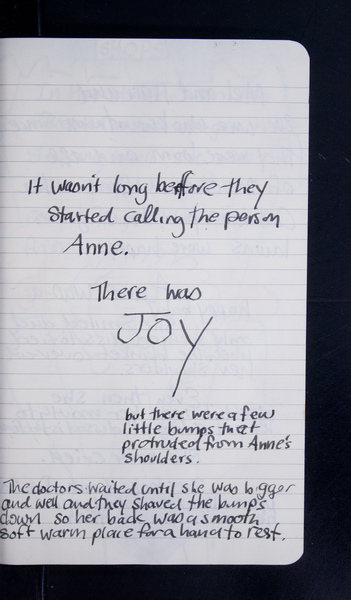 It wasn't long before they
started calling the person
Anne.
There was
JOY
but there were a few
little bumps that
protruded from Anne's
shoulders.
The doctors waited until she was bigger
and well and they shaved the bumps
down so her back was a smooth
soft warm place for a hand to rest.